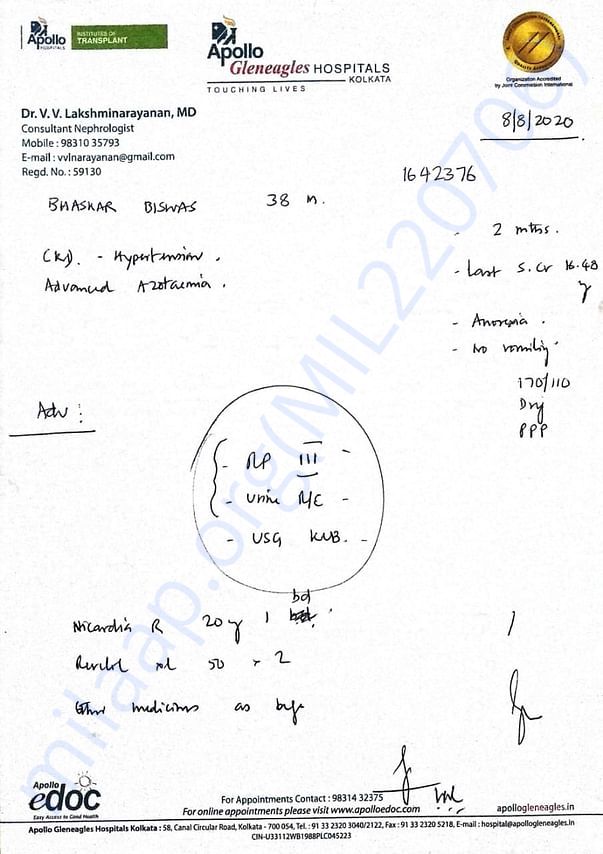 Apollo
HOSPITALS
INSTITUTES OF
TRANSPLANT
Apollo
Gleneagles HOSPITALS
KOLKATA
TOUCHING LIVES
Organization Accredited
by Joint Commission International
Dr. V. V. Lakshminarayanan, MD
Consultant Nephrologist
Mobile : 98310 35793
E-mail : vvlnarayanan@gmail.com
Regd. No. : 59130
8/8/2020
1642376
BHASKAR BISWAS 38 m.
- 2 mths.
CKD. - Hypertension.
- Last S. Cr 16.48
Advanced Azotaemia.
- Anorexia.
- No vomiting
170/110
Dry
PPP
Adv :
- RP III -
- Urine R/C -
- USG KUB. -
Nicardia R 20 1 bd
xl 50 x 2
Other medicines as
milaap.org(MIL220706)
Apollo
edoc
Easy Access to Good Health
For Appointments Contact : 98314 32375
For online appointments please visit www.apolloedoc.com
apollogleneagles.in
Apollo Gleneagles Hospitals Kolkata : 58, Canal Circular Road, Kolkata - 700 054, Tel : 91 33 2320 3040/2122, Fax : 91 33 2320 5218, E-mail : hospital@apollogleneagles.in
CIN-U33112WB1988PLC045223